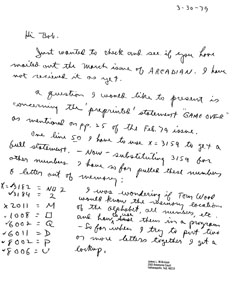 3-30-79
Hi Bob.
Just wanted to check and see if you have
mailed out the March issue of ARCADIAN. I have
not recieved it as yet.
A question I would like to present is
concerning the 'preprinted' statement "GAME OVER"
as mentioned on pp. 25 of the Feb 79 issue.
One line 50 I have to use x=3159 to get a
full statement. - Now - substituting 3159 for
other numbers I have so far pulled these numbers
& letters out of memory:
x=3182 = NO 2
3184 = 2
x 2011 = M
-1008 =
-6002 = Q
-6011 = D
-8002 = P
-8006 = U
I was wondering if Tom Wood
would know the memory location
of the alphabet, all numbers etc.
and how to use them in a program
- So far when I try to put two
or more letters together I get a
locking.